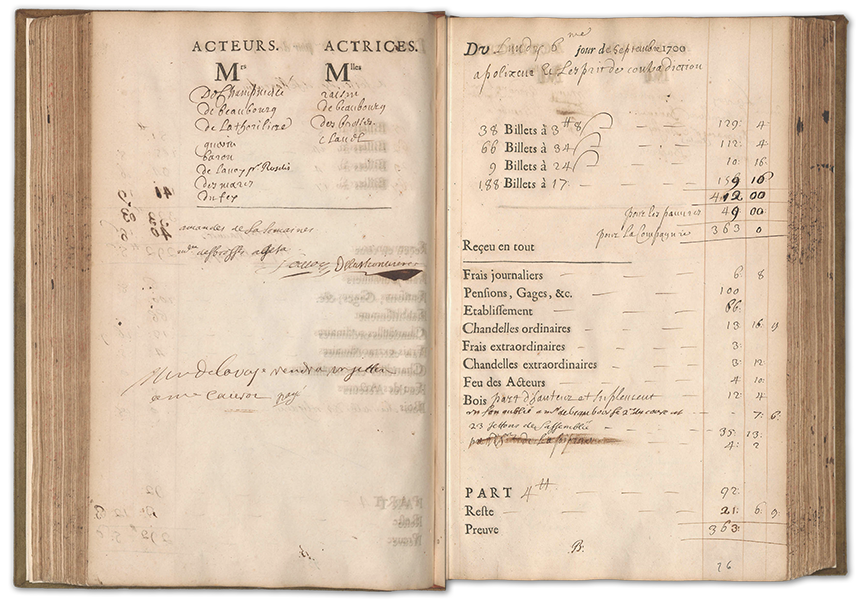 ACTEURS. ACTRICES.
Mrs Mlles
De Champmeslé raisin
de beaubourg de beaubourg
de Lathorilière des brosses
guerin Clavel
baron
de Lavoy pr Roselis
desmares
dufey
41
amandes de La semaines
desbrosses
Mr de Lavoye rendra un jetton
a me Causor payé
Du Lundy 6me jour de Septembre 1700
apolixene et Lesprit de contradiction
38 Billets à 3# 8 129: 4
66 Billets à 34 112: 4
9 Billets à 24 10: 16
188 Billets à 17. 159 16
412 00
pour les pauvres 49 00
pour La Compagnie 363 0
Reçeu en tout
Frais journaliers 6 8
Pensions, Gages, &c. 100
Etablissement 66
Chandelles ordinaires 13 16 9
Frais extraordinaires 3:
Chandelles extraordinaires 3: 12
Feu des Acteurs 4 10
Bois part d'auteur et suplement 12 4
un son oublié a mr de beaubour 7: 6
23 jettons de L'assemblée 35: 13:
4: 2
PART 4# 92:
Reste 21: 6 9:
Preuve 363:
B.
26